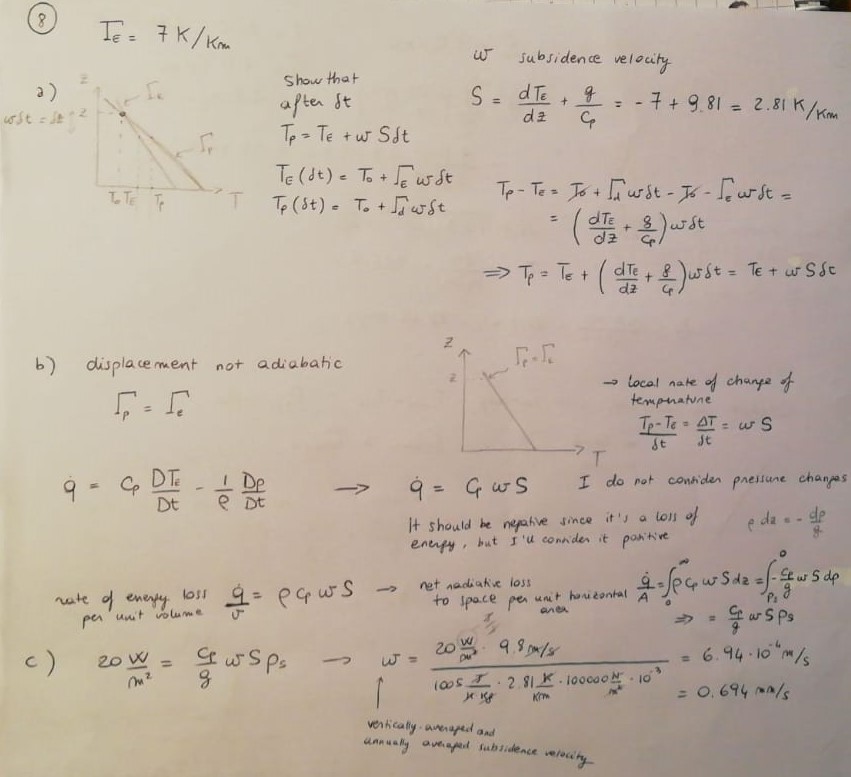 8
Γ_E = 7 K/Km
a)
z
Γ_e
wδt = δt
z
Γ_p
T_0 T_E T_p
T
Show that
after δt
T_p = T_E + w S δt
T_E (δt) = T_0 + Γ_E w δt
T_p (δt) = T_0 + Γ_d w δt
w subsidence velocity
S = dT_E/dz + g/C_p = -7 + 9.81 = 2.81 K/Km
T_p - T_E = T_0 + Γ_d w δt - T_0 - Γ_e w δt =
= (dT_E/dz + g/C_p) w δt
⇒ T_p = T_E + (dT_E/dz + g/C_p) w δt = T_E + w S δt
b) displacement not adiabatic
Γ_p = Γ_e
z
Γ_p = Γ_e
z
T
→ local rate of change of
temperature
(T_p - T_E)/δt = ΔT/δt = w S
q̇ = C_p DT_E/Dt - 1/ρ Dp/Dt → q̇ = C_p w S I do not consider pressure changes
It should be negative since it's a loss of
energy, but I'll consider it positive
ρ dz = - dp/g
rate of energy loss
per unit volume
q̇/v = ρ C_p w S →
net radiative loss
to space per unit horizontal
area
q̇/A = ∫_0^∞ ρ C_p w S dz = ∫_{P_s}^0 - C_p/g w S dp
⇒ = C_p/g w S p_s
c) 20 W/m² = C_p/g w S p_s → w = (20 W/m² · 9.8 m/s) / (1005 J/(K Kg) · 2.81 K/Km · 100000 N/m² · 10^-3) = 6.94 · 10^-4 m/s
= 0.694 mm/s
vertically-averaged and
annually averaged subsidence velocity